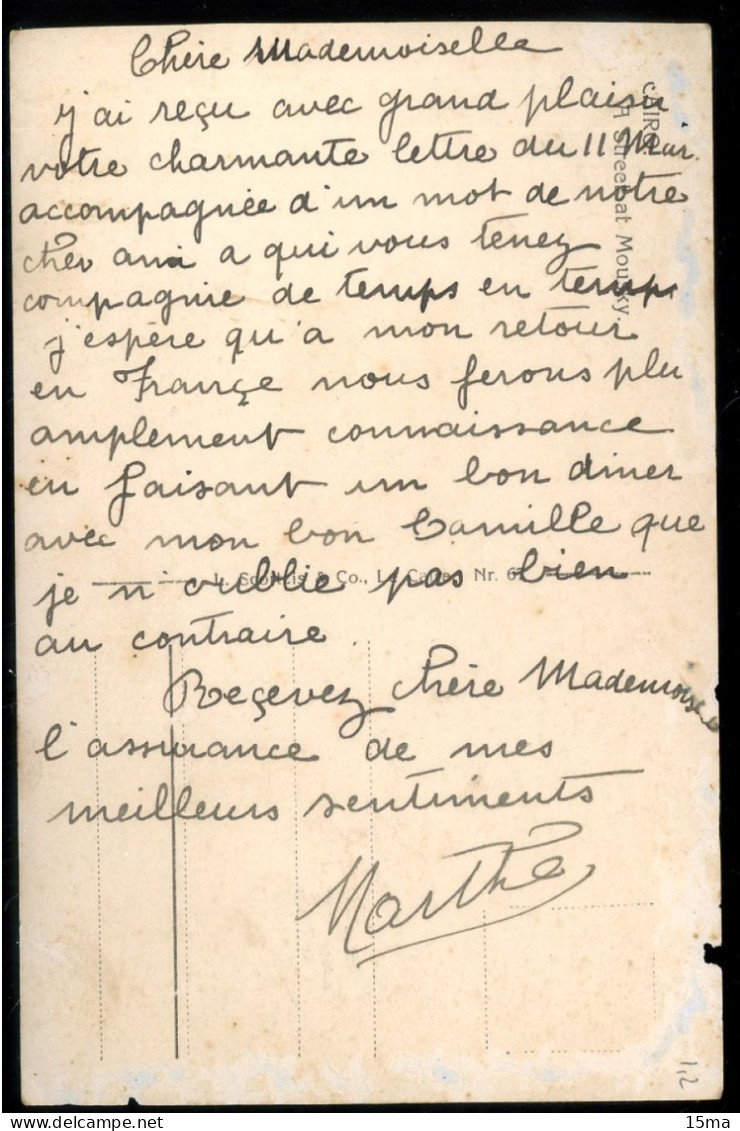 Chère Mademoiselle
j'ai reçu avec grand plaisir
votre charmante lettre du 11 Mar.
accompagnée d'un mot de notre
cher ami a qui vous tenez
compagnie de temps en temps
j'espère qu'a mon retour
en Françe nous ferons plu
amplement connaissance
en faisant un bon diner
avec mon bon Camille que
je n'oublie pas bien
au contraire.
Reçevez chère Mademoiselle
l'assurance de mes
meilleurs sentiments
Marthe
CAIRO.
Street at Mousky.
& Co., Le Caire. Nr. 6
1,2
15ma